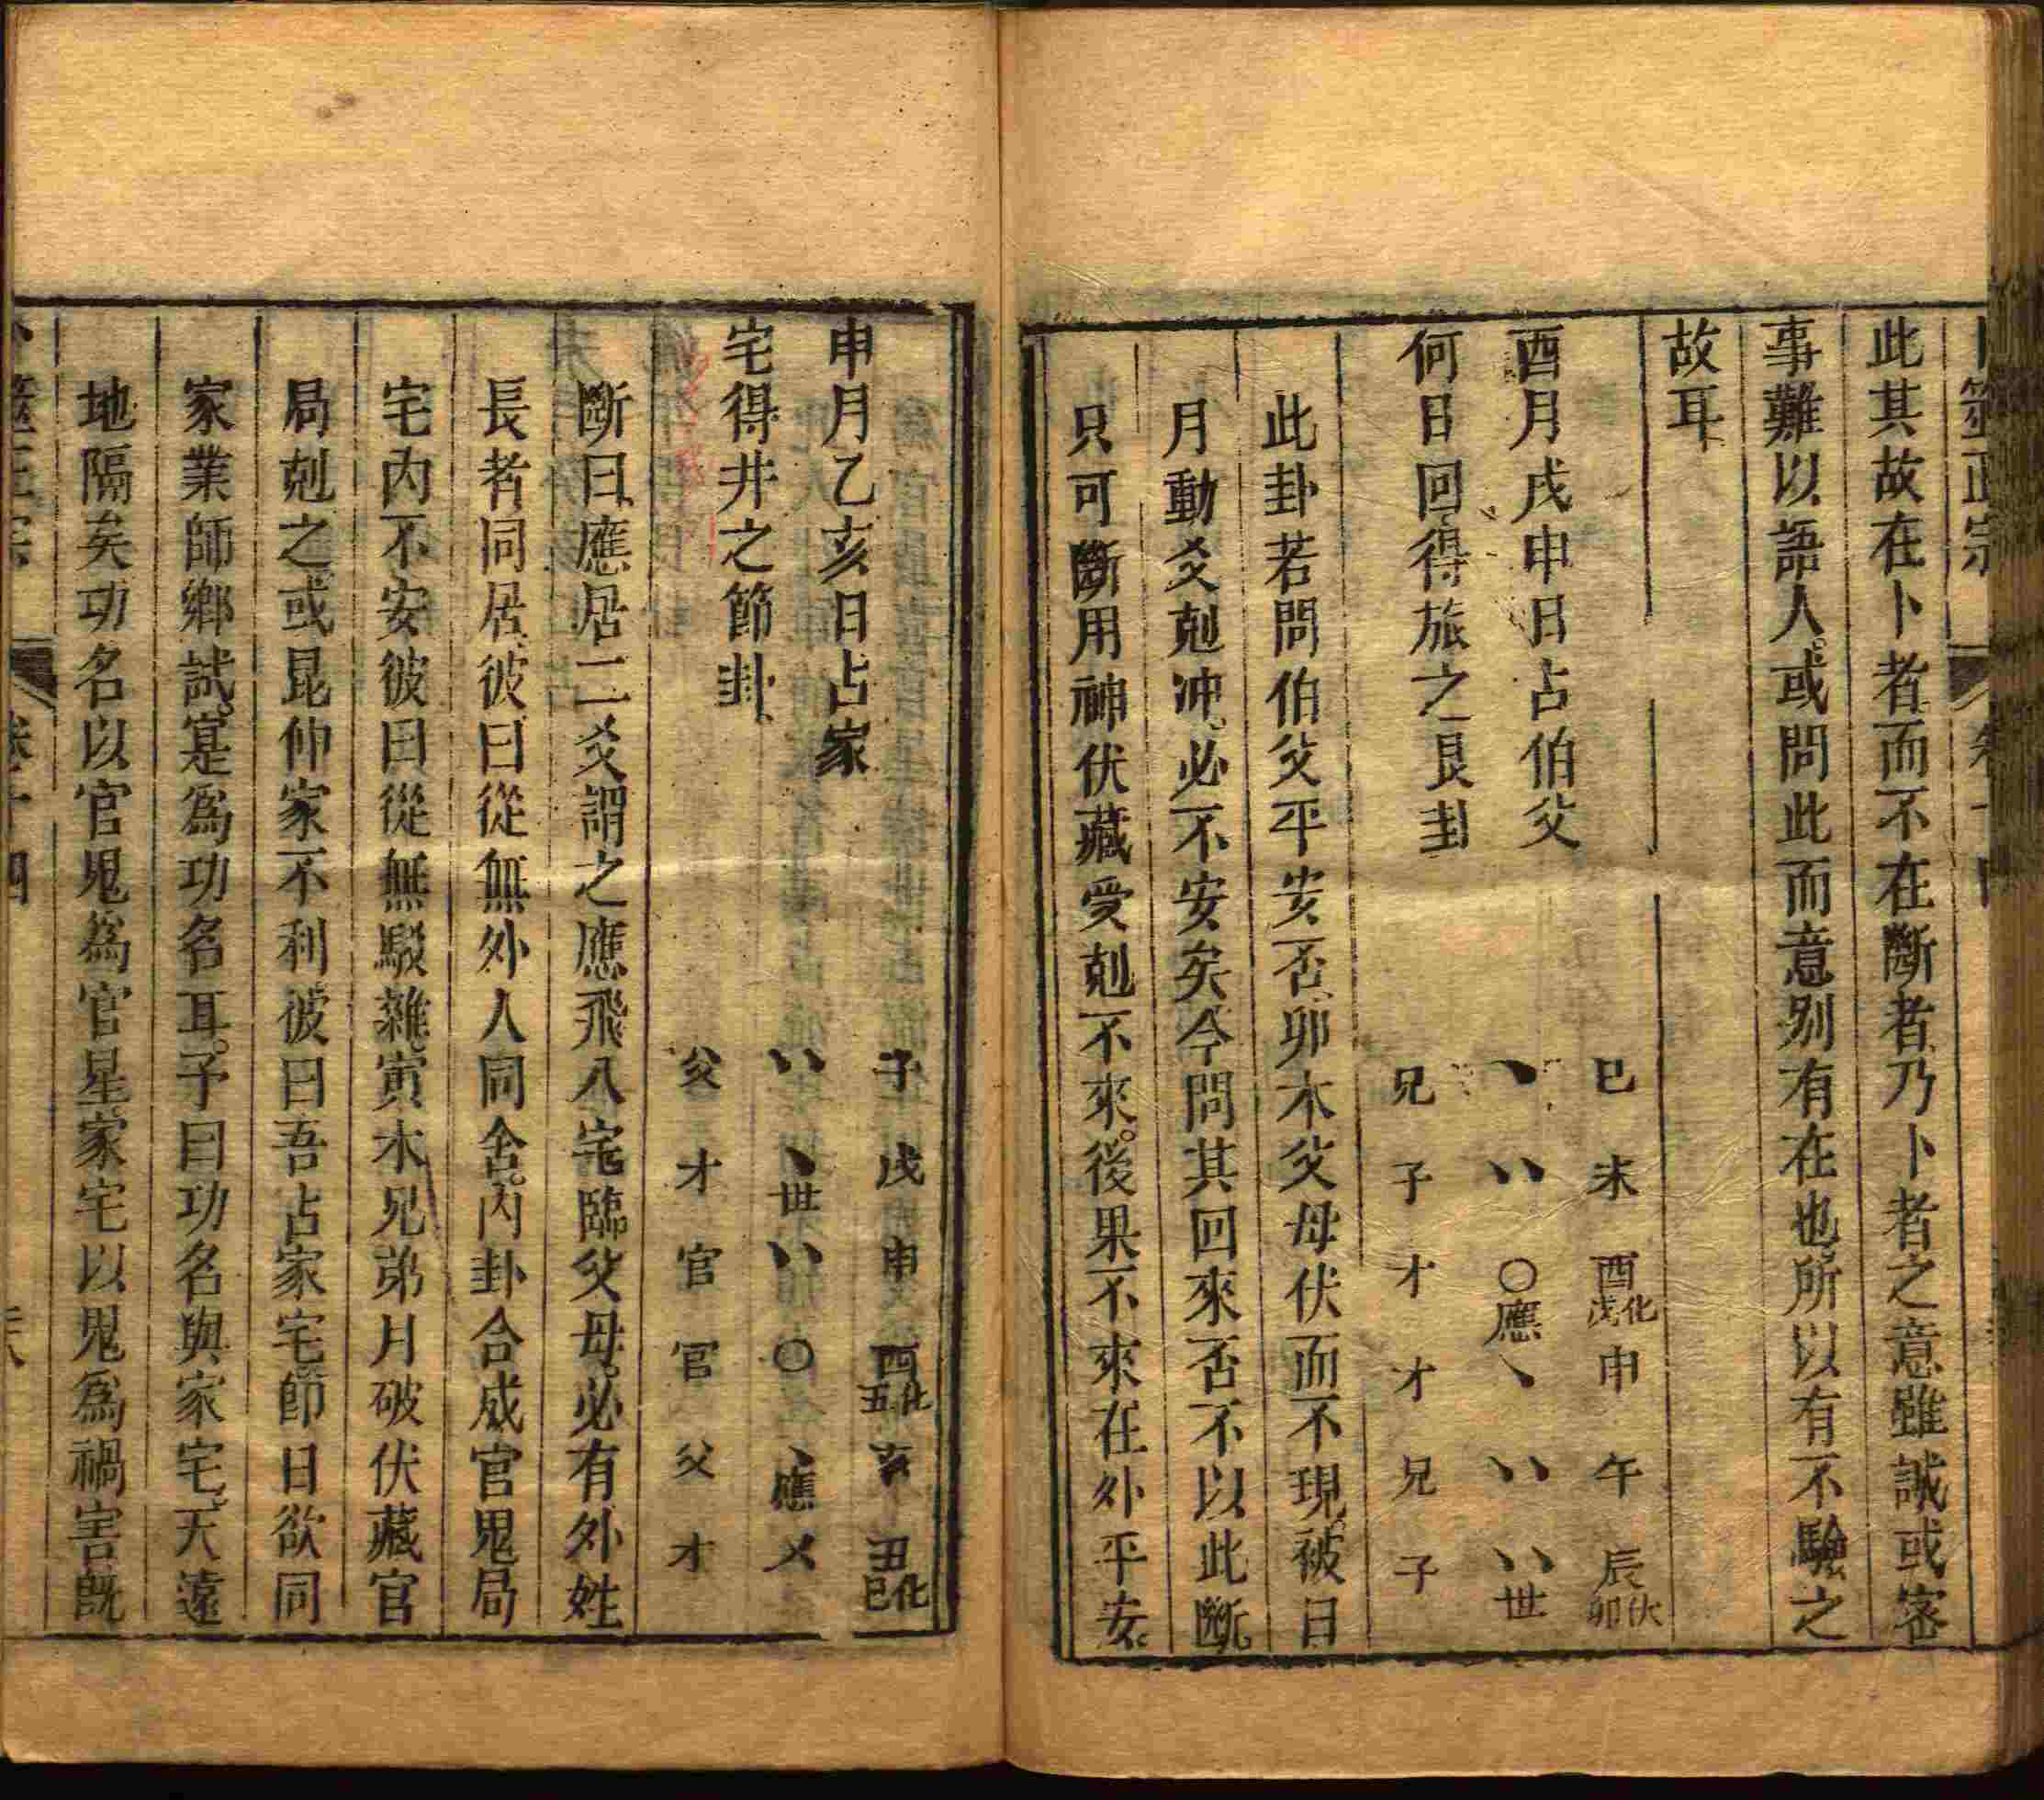 卜筮正宗
此其故在卜者而不在斷者乃卜者之意雖誠或客
事難以語人或問此而意别有在也所以有不驗之
故耳
酉月戌申日占伯父
何日回得旅之艮卦
巳 未 酉化戌 申 午 辰伏卯
、 、、 〇應 、 、、 、、世
兄 子 才 才 兄 子
此卦若問伯父平安否卯木父母伏而不現被日
月動爻剋冲必不安矣今問其回來否不以此斷
只可斷用神伏藏受剋不來後果不來在外平安
申月乙亥日占家
宅得井之節卦
子 戌 申 酉化丑 亥 丑化巳
、、 、世 、、 〇 、應 乂
父 才 官 官 父 才
斷曰應居二爻謂之應飛入宅臨父母必有外姓
長者同居彼曰從無外人同舍内卦合成官鬼局
宅内不安彼曰從無駁雜寅木兄弟月破伏藏官
局剋之或昆仲家不利彼曰吾占家宅節日欲同
家業師鄉試寔爲功名耳予曰功名與家宅天遠
地隔矣功名以官鬼爲官星家宅以鬼爲禍害既
卷十四